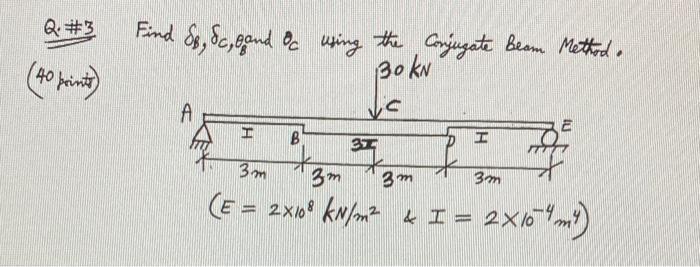 Q.#3 Find δB, δC, θB and θC using the Conjugate Beam Method.
(40 points)
30 kN
C
A E
I B 3I D I
3m 3m 3m 3m
(E = 2×10⁸ kN/m² & I = 2×10⁻⁴ m⁴)